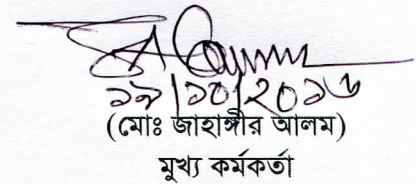 ১৯/১০/২০১৬
(মোঃ জাহাঙ্গীর আলম)
মুখ্য কর্মকর্তা